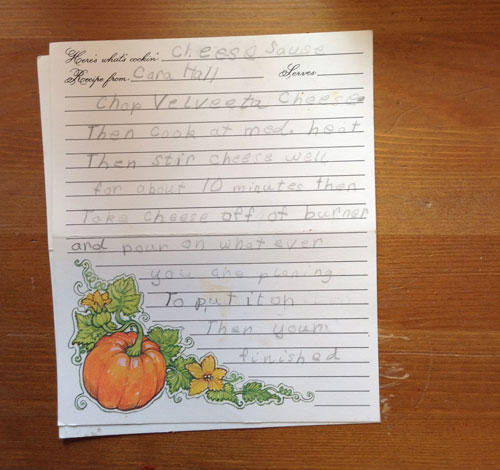 Here's what's cookin' Cheese Sause
Recipe from Cara Hall Serves
Chop Velveeta Cheese
Then Cook at med. heat
Then stir cheese well
for about 10 minutes then
Take cheese off of burner
and pour on what ever
you are planing
To put it on
Then your
finished